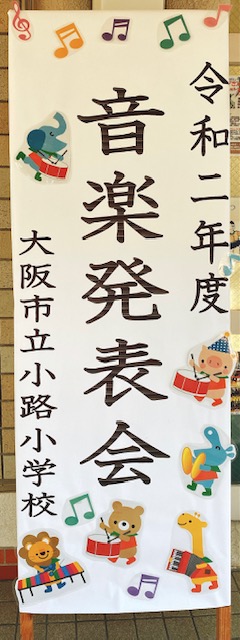 令和二年度
音楽発表会
大阪市立小路小学校